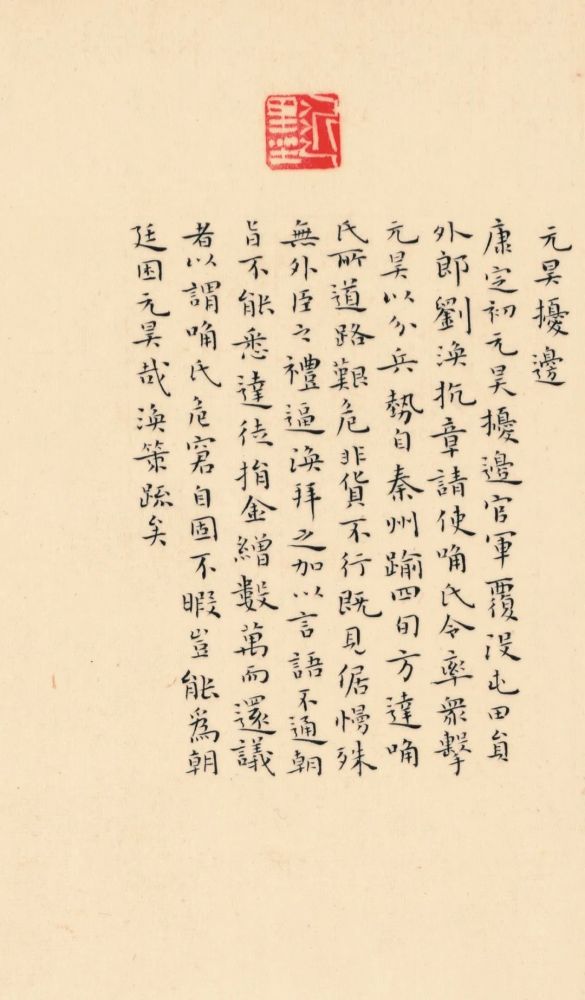 元昊擾邊
康定初元昊擾邊官軍覆没屯田員
外郎劉渙抗章請使唃氏令率衆擊
元昊以分兵勢自秦州踰四旬方達唃
氏所道路艱危非貨不行既見倨慢殊
無外臣之禮逼渙拜之加以言語不通朝
旨不能悉達徒捐金繒數萬而還議
者以謂唃氏危窘自固不暇豈能爲朝
廷困元昊哉渙策疏矣